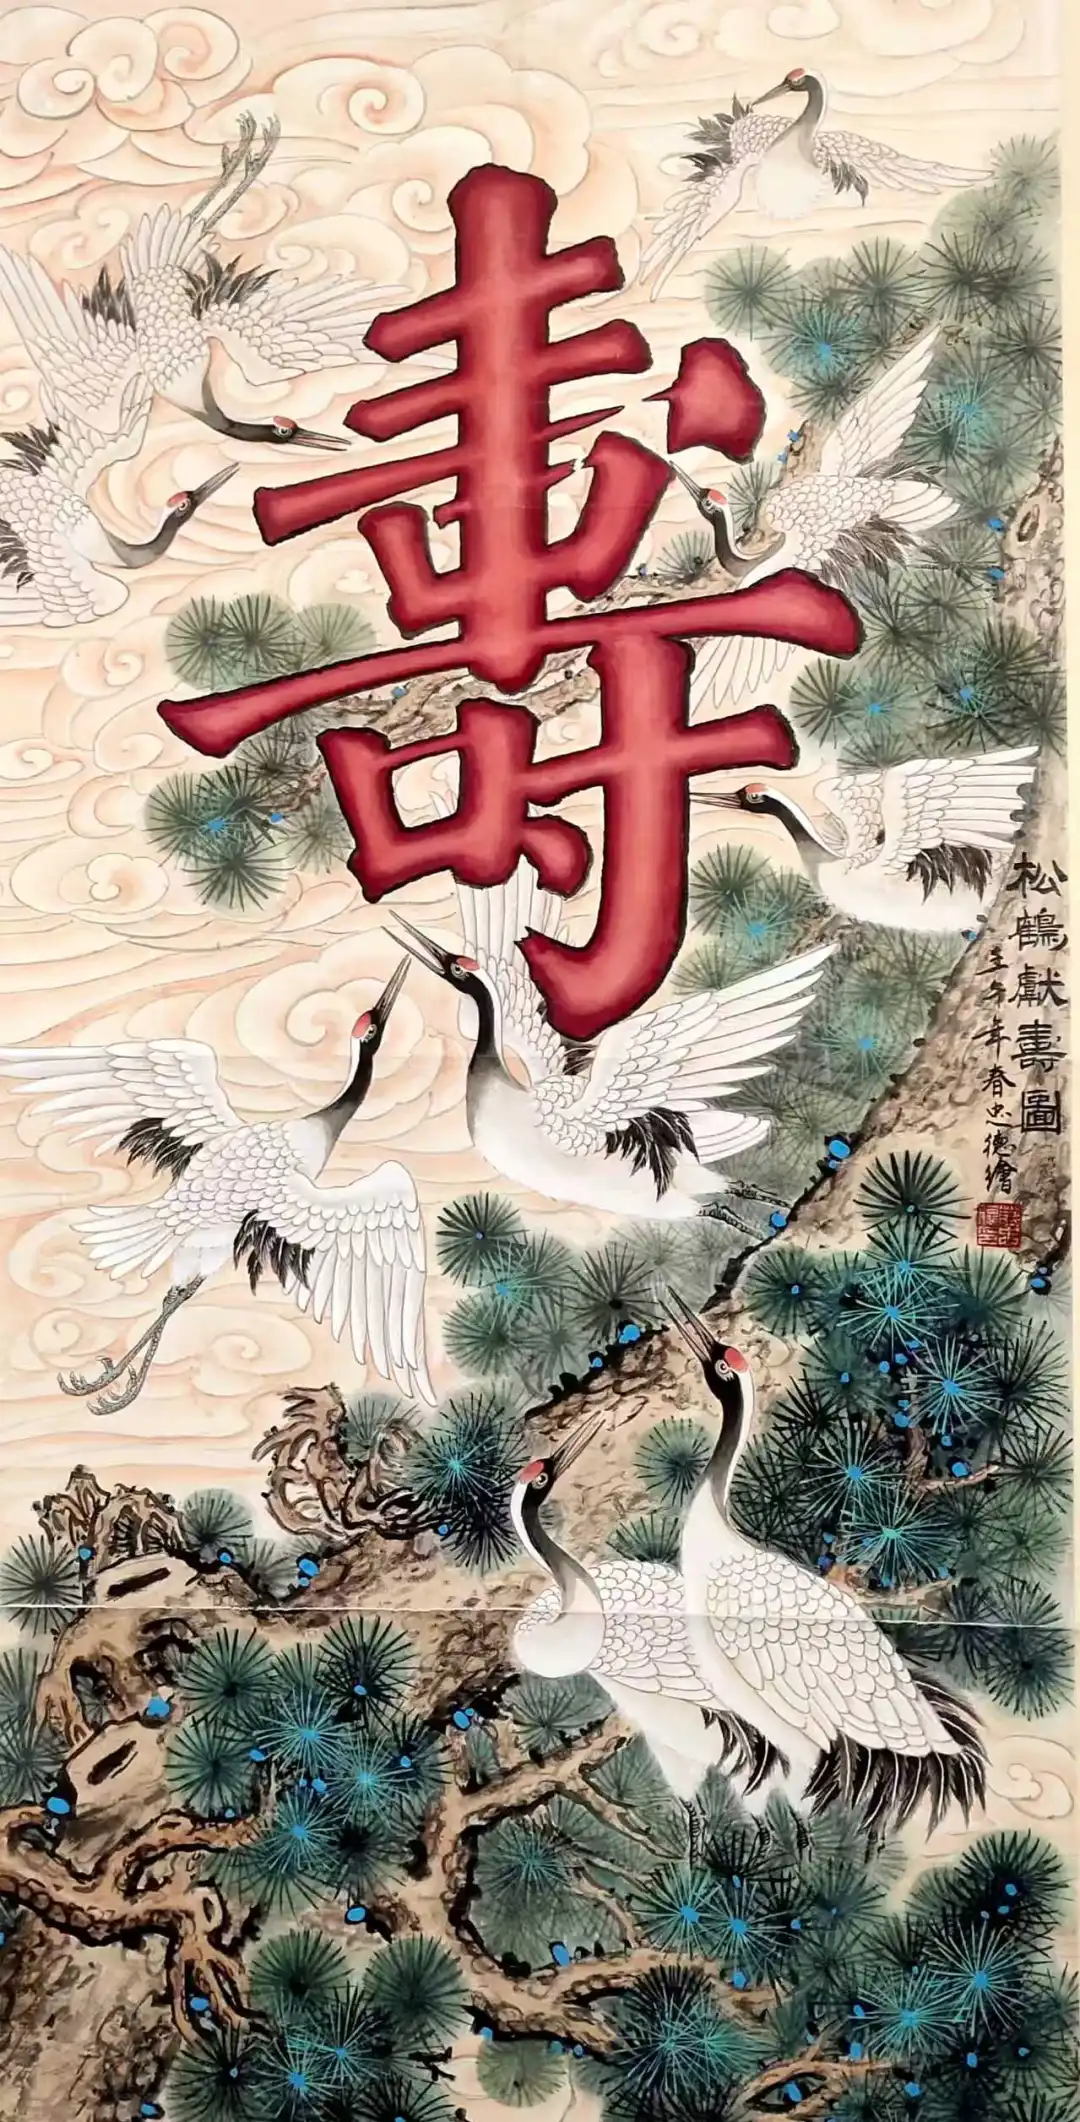 壽
松鶴獻壽圖
壬午年春忠德繪